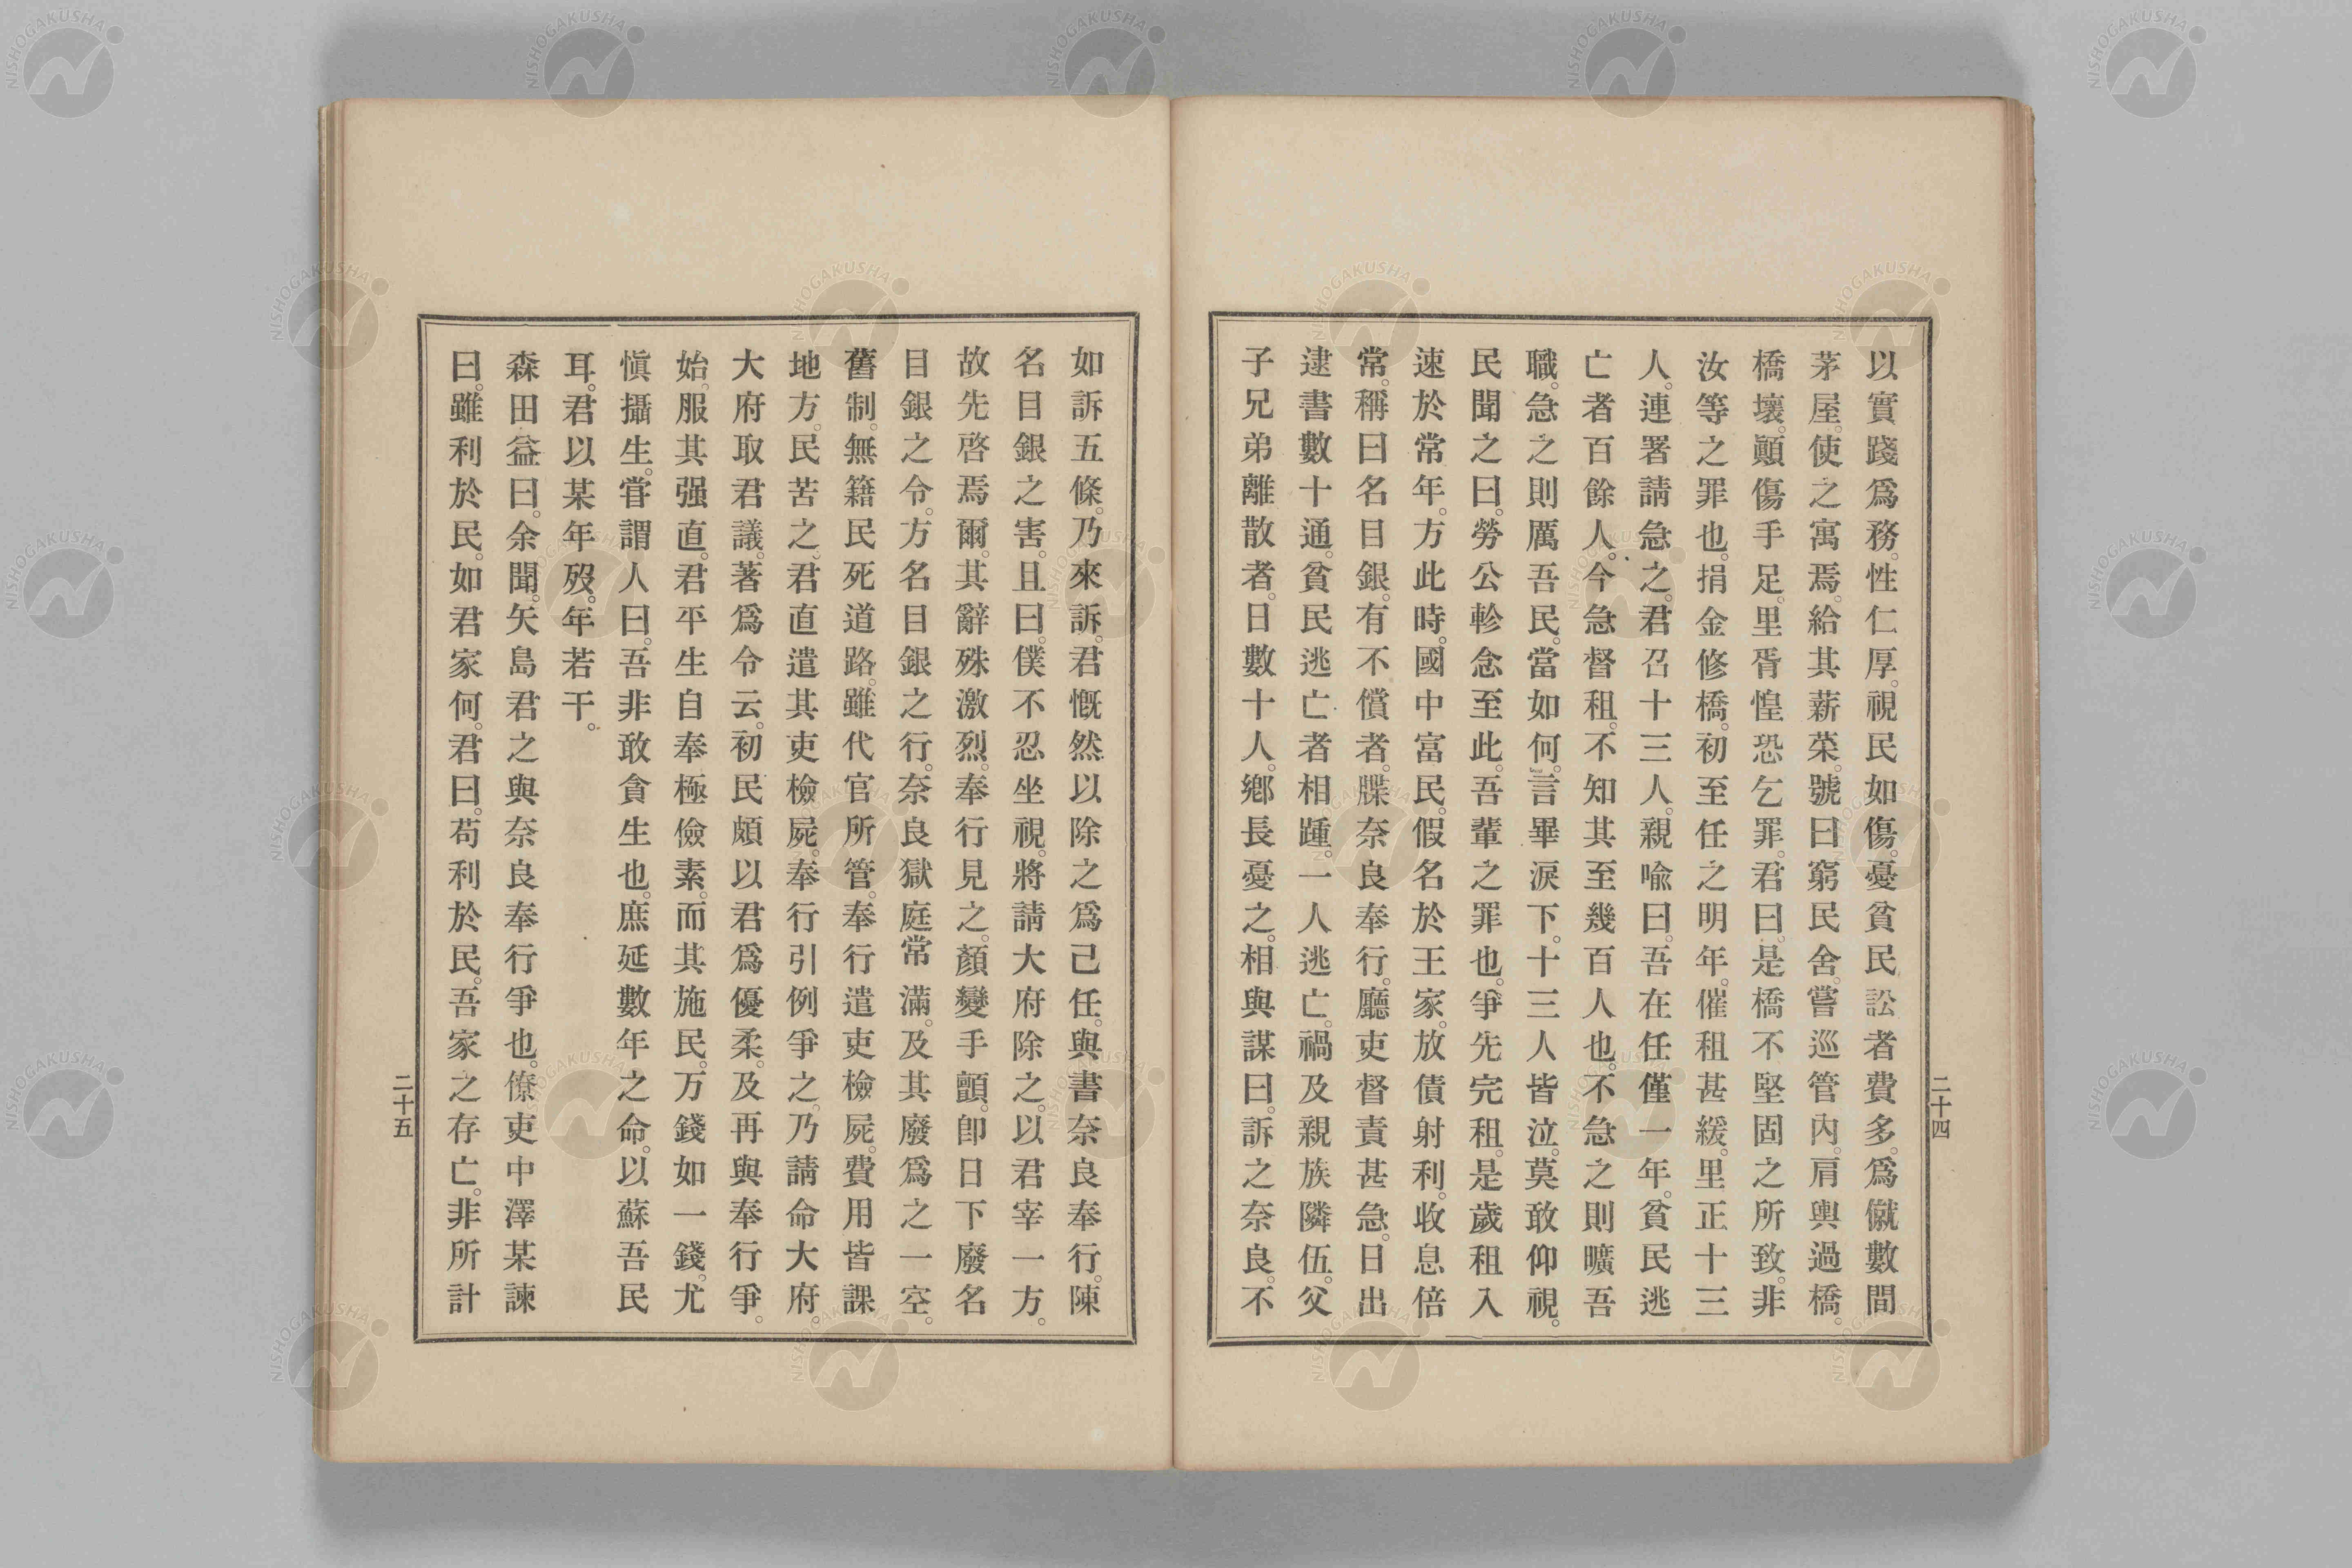 以實踐爲務。性仁厚。視民如傷。憂貧民訟者費多。爲僦數間
茅屋。使之寓焉。給其薪菜。號曰窮民舍。嘗巡管內。肩輿過橋。
橋壞。顚傷手足。里胥惶恐乞罪。君曰。是橋不堅固之所致。非
汝等之罪也。捐金修橋。初至任之明年。催租甚緩。里正十三
人。連署請急之。君召十三人。親喩曰。吾在任僅一年。貧民逃
亡者百餘人。今急督租。不知其至幾百人也。不急之則曠吾
職。急之則厲吾民。當如何。言畢淚下。十三人皆泣。莫敢仰視。
民聞之曰。勞公軫念至此。吾輩之罪也。爭先完租。是歲租入
速於常年。方此時。國中富民。假名於王家。放債射利。收息倍
常。稱曰名目銀。有不償者。牒奈良奉行。廳吏督責甚急。日出
逮書數十通。貧民逃亡者相踵。一人逃亡。禍及親族隣伍。父
子兄弟離散者。日數十人。鄕長憂之。相與謀曰。訴之奈良。不
二十四
如訴五條。乃來訴。君慨然以除之爲己任。與書奈良奉行。陳
名目銀之害。且曰。僕不忍坐視。將請大府除之。以君宰一方。
故先啓焉爾。其辭殊激烈。奉行見之。顏變手顫。卽日下廢名
目銀之令。方名目銀之行。奈良獄庭常滿。及其廢爲之一空。
舊制。無籍民死道路。雖代官所管。奉行遣吏檢屍。費用皆課
地方。民苦之。君直遣其吏檢屍。奉行引例爭之。乃請命大府。
大府取君議。著爲令云。初民頗以君爲優柔。及再與奉行爭。
始服其强直。君平生自奉極儉素。而其施民。万錢如一錢。尤
愼攝生。嘗謂人曰。吾非敢貪生也。庶延數年之命。以蘇吾民
耳。君以某年歿。年若干。
森田益曰。余聞。矢島君之與奈良奉行爭也。僚吏中澤某諫
曰。雖利於民。如君家何。君曰。苟利於民。吾家之存亡。非所計
二十五
NISHOGAKUSHA